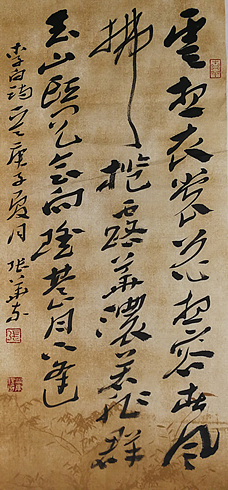 雲想衣裳花想容春风
拂檻露華濃若非群
玉山頭见会向瑶臺月下逢
李白詩一首庚子夏月 張華